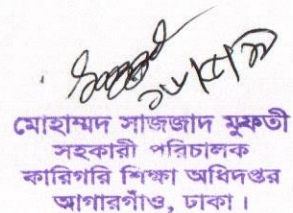 মোহাম্মদ সাজজাদ মুফতী
সহকারী পরিচালক
কারিগরি শিক্ষা অধিদপ্তর
আগারগাঁও, ঢাকা।